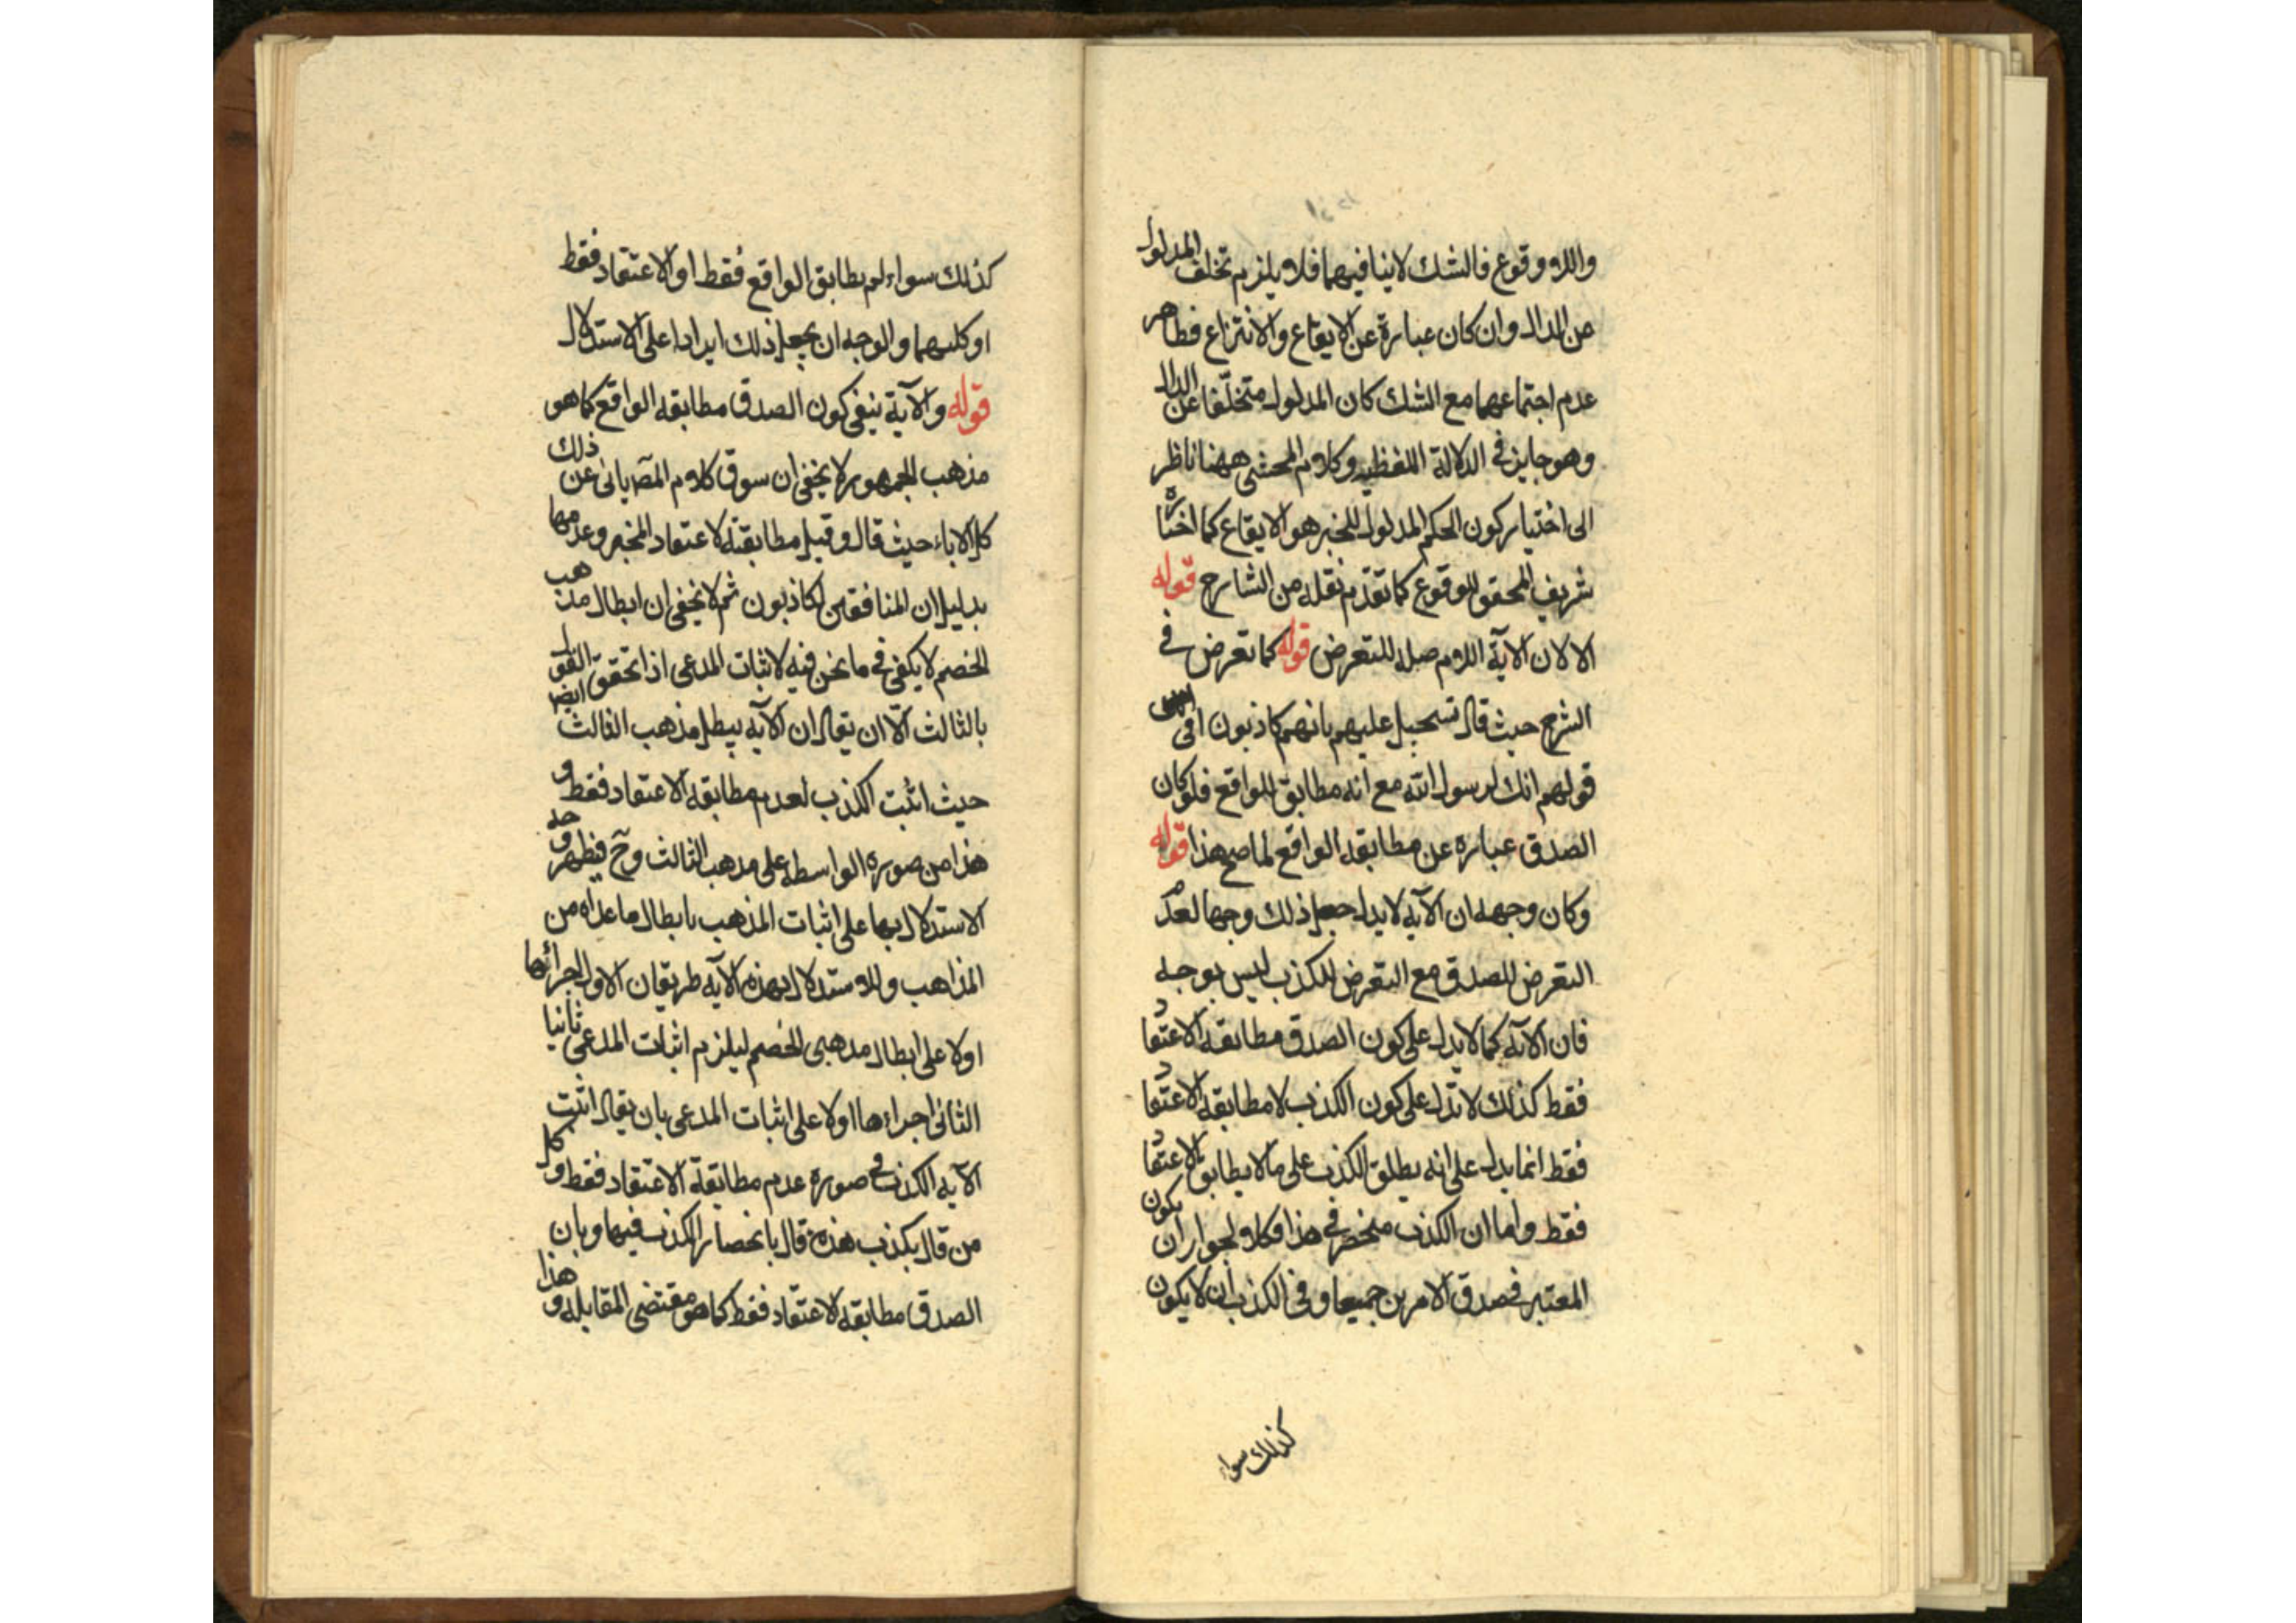 واللاوقوع فالشك لاينافيهما فلا يلزم تخلف المدلول
عن الدال وان كان عبارة عن الايقاع والانتزاع فظاهر
عدم اجتماعهما مع الشك كان المدلول متخلفا عن الدال
وهو جايز في الدلالة اللفظيه وكلام المحشي ههنا ناظر
الى اختيار كون الحكم المدلول للخبر هو الايقاع كما اختاره
شريف المحقق للوقوع كما تقدم نقله من الشارح قوله
الا لان الآية اللام صله للتعرض قوله كما تعرض في
الشرح حيث قال تسجيل عليهم بانهم كاذبون في
قولهم انك لرسول الله مع انه مطابق للواقع فلو كان
الصدق عباره عن مطابقه الواقع لما صح هذا قوله
وكان وجهه ان الآيه لايدل جعل ذلك وجها لعدم
التعرض للصدق مع التعرض للكذب ليس بوجه
فان الآيه كما لا يدل على كون الصدق مطابقه الاعتقاد
فقط كذلك لا تدل على كون الكذب لامطابقه الاعتقاد
فقط انما يدل على انه يطلق الكذب على ما لا يطابق الاعتقاد
فقط واما ان الكذب منحصر في هذا فكلا ولجواز ان يكون
المعتبر في صدق الامرين جميعا وفي الكذب ان لا يكون
كذلك سواء
كذلك سواء لم يطابق الواقع فقط او الاعتقاد فقط
او كليهما والوجه ان يجعل ذلك ايرادا على الاستدلال
قوله والآية ينفي كون الصدق مطابقه الواقع كما هو
مذهب الجمهور لا يخفى ان سوق كلام المصـ يابى عن ذلك
كل الاباء حيث قال وقيل مطابقته لاعتقاد المخبر وعدمها
بدليل ان المنافقين لكاذبون ثم لا يخفى ان ابطال مذهب
الخصم لا يكفي في ما نحن فيه لاثبات المدعى اذا تحقق القول
بالثالث الّا ان يقال ان الآيه يبطل مذهب الثالث ايضا
حيث اثبت الكذب لعدم مطابقه الاعتقاد فقط و
هذا من صوره الواسطه على مذهب الثالث وح فيظهر وجه
الاستدلال بها على اثبات المذهب بابطال ما عداه من
المذاهب وللاستدلال بهذه الآيه طريقان الاول اجرائها
اولا على ابطال مذهبى الخصم ليلزم اثبات المدعى ثانيا
الثانى اجراءها اولا على اثبات المدعى بان يقال اثبت
الآيه الكذب في صوره عدم مطابقة الاعتقاد فقط وكل
من قال بكذب هذه قال بانحصار الكذب فيها وبان
الصدق مطابقه الاعتقاد فقط كما هو مقتضى المقابله وهذا